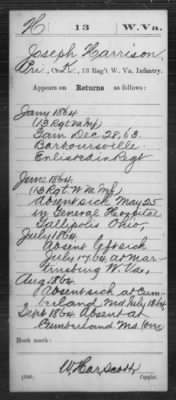 H 13 W. Va.
Joseph Harrison,
Pri., Co. K, 13 Reg't W. Va. Infantry.
Appears on Returns as follows:
Jany 1864
(13 Rgt W Va Inf)
Gain Dec 28, 63.
Barboursville
Enlisted in Regt
June 1864
(13 Rgt W Va Inf)
Absent sick May 25
in General Hospital
Gallipolis Ohio,
July 1864
Absent left sick
July 17, 64 at Mar-
tinsburg W. Va.,
Aug. 1864
Absent sick at Cum-
berland Md July 1864
Sept 1864 Absent at
Cumberland Md. (over
Book mark:
(546)
Copyist.